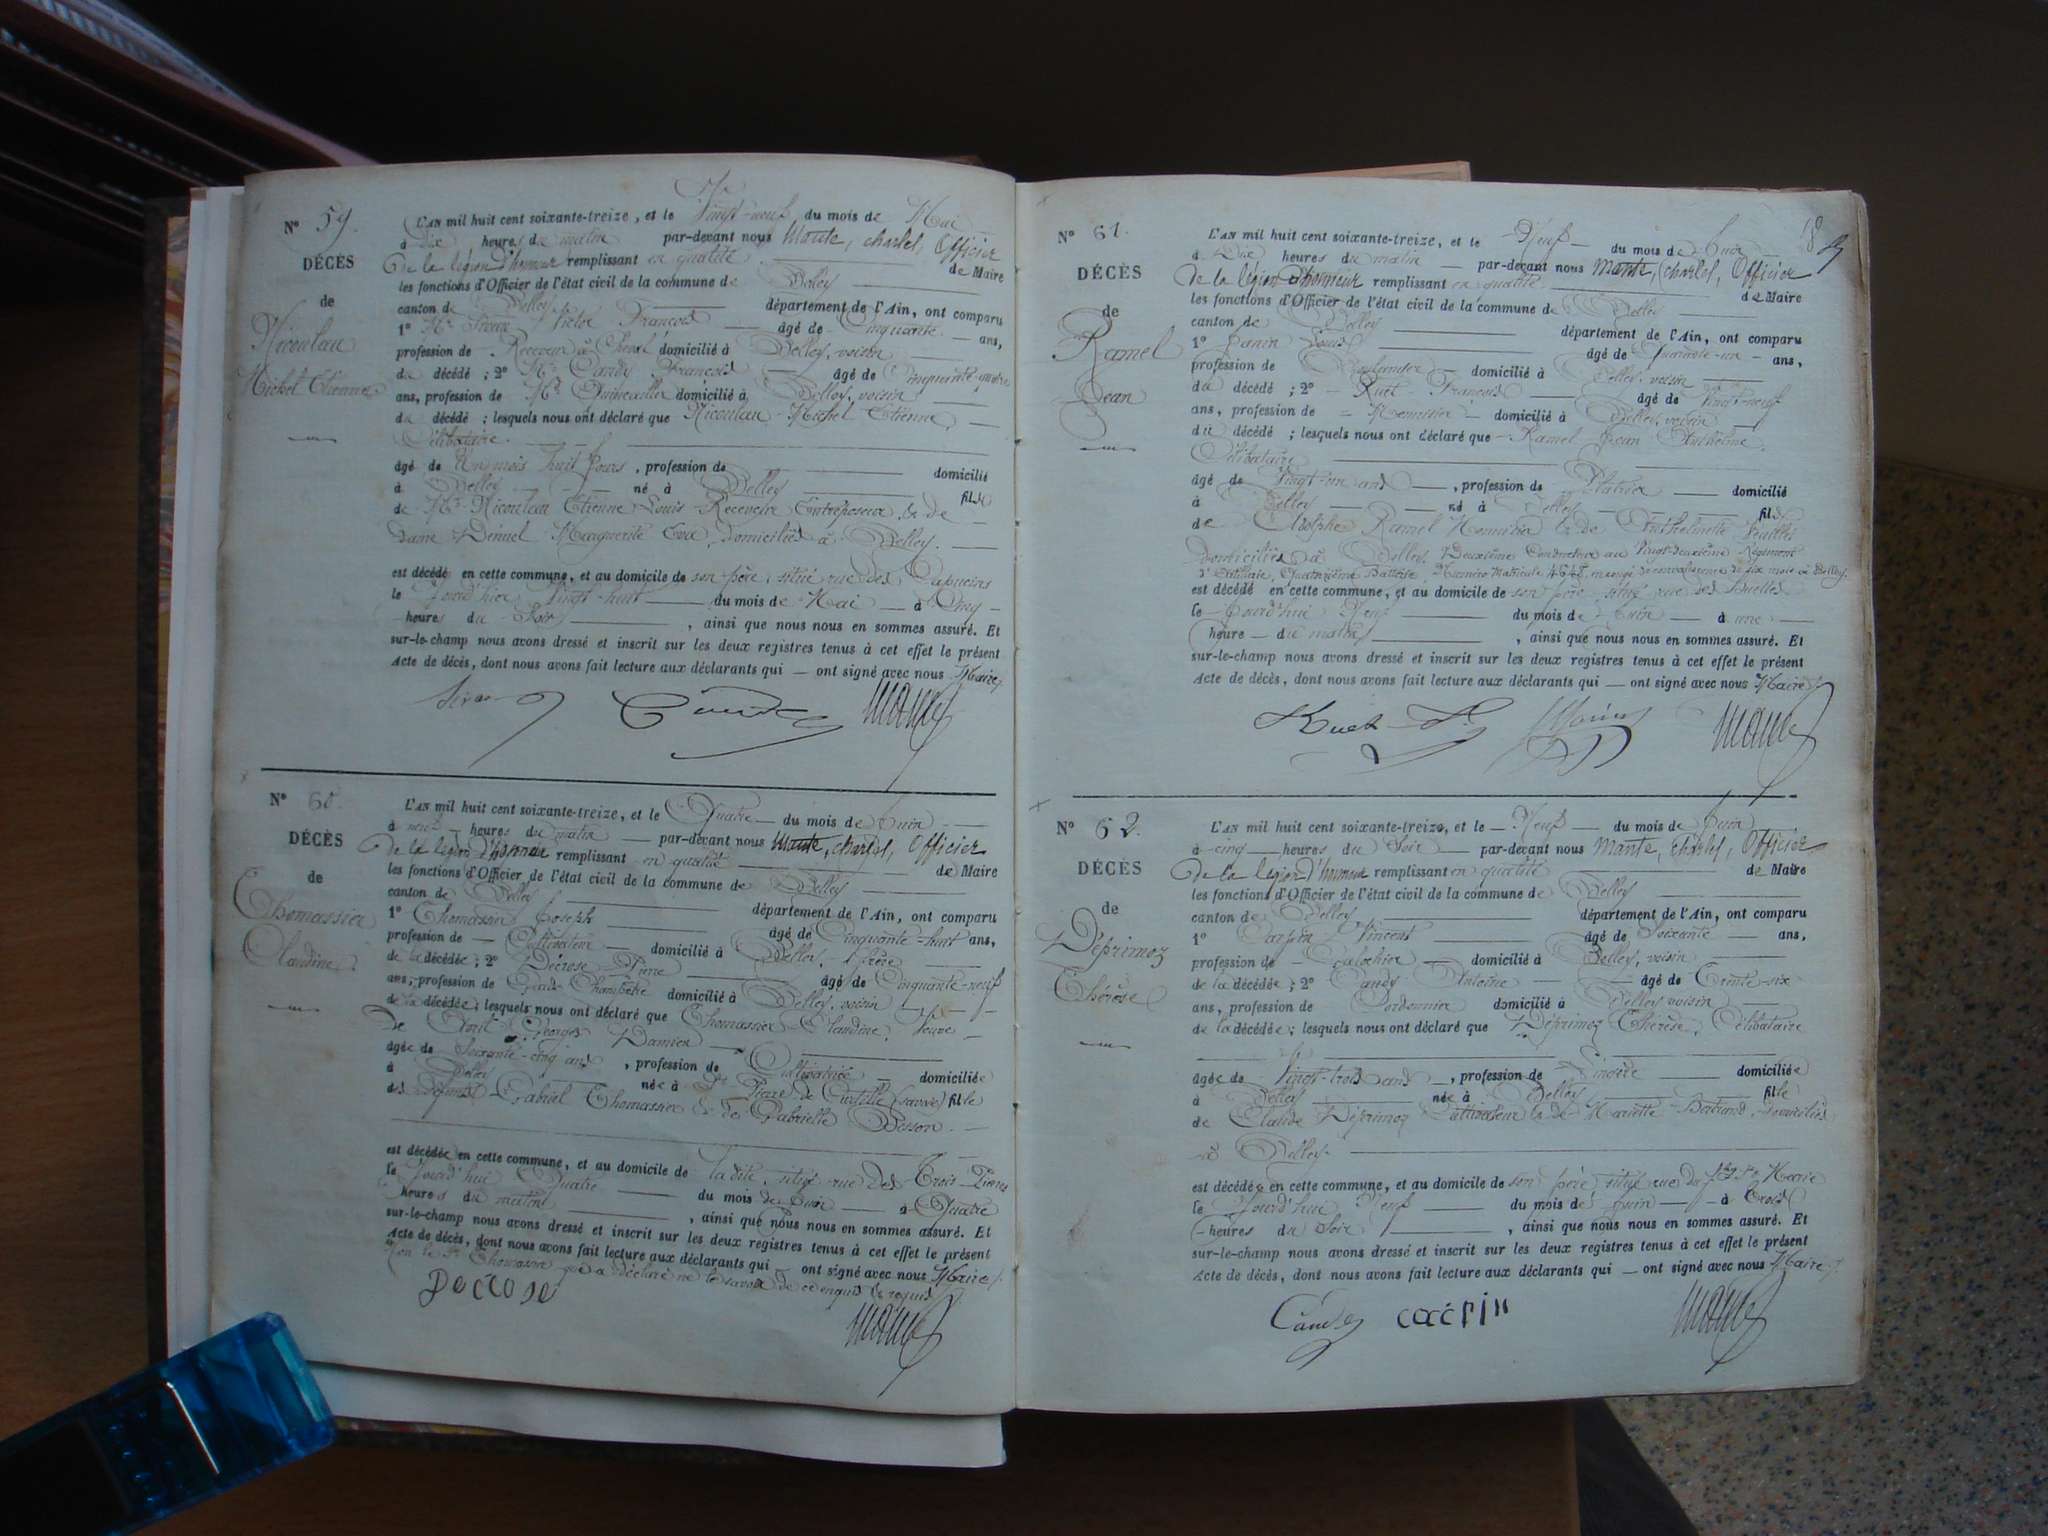 N° 59.
DÉCÈS
de
Nicoulau
Michel Etienne
L'AN mil huit cent soixante-treize, et le Vingt-neuf du mois de Mai
à dix heures du matin par-devant nous Mante, charles, Officier
De la légion d'honneur remplissant en qualité de Maire
les fonctions d'Officier de l'état civil de la commune de Belley
canton de Belley département de l'Ain, ont comparu
1° Mr Victor François âgé de Cinquante ans,
profession de Receveur à Cheval domicilié à Belley, voisin
du décédé ; 2° Mr François âgé de Cinquante-quatre
ans, profession de Md Quincailler domicilié à Belley, voisin
du décédé ; lesquels nous ont déclaré que Nicoulau Michel Etienne,
Célibataire.
âgé de Un mois huit jours, profession de domicilié
à Belley né à Belley fils
de Mr Nicoulau Etienne Louis Receveur Entreposeur & de
dame Marguerite Eva, domiciliés à Belley.
est décédé en cette commune, et au domicile de son père, situé rue des Capucins
le Jourd'hier Vingt-huit du mois de Mai à Onze
heures du Soir, ainsi que nous nous en sommes assuré. Et
sur-le-champ nous avons dressé et inscrit sur les deux registres tenus à cet effet le présent
Acte de décès, dont nous avons fait lecture aux déclarants qui ont signé avec nous Maire.
Mante
N° 60.
DÉCÈS
de
Thomassier
Claudine.
L'AN mil huit cent soixante-treize, et le Quatre du mois de Juin
à neuf heures du matin par-devant nous Mante, charles, Officier
De la légion d'honneur remplissant en qualité de Maire
les fonctions d'Officier de l'état civil de la commune de Belley
canton de Belley département de l'Ain, ont comparu
1° Thomassier Joseph âgé de Cinquante-huit ans,
profession de Cultivateur domicilié à Belley, Frère
de la décédée ; 2° Décrose Pierre âgé de Cinquante-neuf
ans, profession de Garde Champêtre domicilié à Belley, voisin
de la décédée ; lesquels nous ont déclaré que Thomassier Claudine, Veuve
de Georges Damien
âgée de Soixante-cinq ans, profession de Cultivatrice domiciliée
à Belley née à St Pierre de Curtille (Savoie) fille
des défunts Gabriel Thomassier & de Gabrielle Besson.
est décédée en cette commune, et au domicile de la dite, situé rue des Trois Pierres
le Jourd'hui Quatre du mois de Juin à Quatre
heures du matin, ainsi que nous nous en sommes assuré. Et
sur-le-champ nous avons dressé et inscrit sur les deux registres tenus à cet effet le présent
Acte de décès, dont nous avons fait lecture aux déclarants qui ont signé avec nous Maire,
non le Sr Thomassier qui a déclaré ne le savoir de ce enquis & requis
Decrose
Mante
18
N° 61.
DÉCÈS
de
Ramel
Jean
L'AN mil huit cent soixante-treize, et le Neuf du mois de Juin
à Dix heures du matin par-devant nous Mante, charles, Officier
De la légion d'honneur remplissant en qualité de Maire
les fonctions d'Officier de l'état civil de la commune de Belley
canton de Belley département de l'Ain, ont comparu
1° Louis âgé de Quarante-un ans,
profession de domicilié à Belley, voisin
du décédé ; 2° Ruet François âgé de Vingt-neuf
ans, profession de Menuisier domicilié à Belley, voisin
du décédé ; lesquels nous ont déclaré que Ramel Jean Anthelme.
Célibataire
âgé de Vingt-un ans, profession de Plâtrier domicilié
à Belley né à Belley fils
de Adolphe Ramel Menuisier & de Anthelmette
domiciliés à Belley, Deuxième Conducteur au Vingt-deuxième Régiment
d'Artillerie, Quatorzième Batterie, Numéro Matricule en congé de convalescence de six mois à Belley.
est décédé en cette commune, et au domicile de son père, situé rue des
le Jourd'hui Neuf du mois de Juin à une
heure du matin, ainsi que nous nous en sommes assuré. Et
sur-le-champ nous avons dressé et inscrit sur les deux registres tenus à cet effet le présent
Acte de décès, dont nous avons fait lecture aux déclarants qui ont signé avec nous Maire.
Ruet
Mante
N° 62.
DÉCÈS
de
Déprimoz
Thérèse
L'AN mil huit cent soixante-treize, et le Neuf du mois de Juin
à cinq heures du Soir par-devant nous Mante, charles, Officier
De la légion d'honneur remplissant en qualité de Maire
les fonctions d'Officier de l'état civil de la commune de Belley
canton de Belley département de l'Ain, ont comparu
1° Carpin Vincent âgé de Soixante ans,
profession de Galochier domicilié à Belley, voisin
de la décédée ; 2° Candy Antoine âgé de Trente-six
ans, profession de Cordonnier domicilié à Belley, voisin
de la décédée ; lesquels nous ont déclaré que Déprimoz Thérèse, Célibataire
âgée de Vingt-trois ans, profession de Lingère domiciliée
à Belley née à Belley fille
de Claude Déprimoz Cultivateur & de Mariette Bertrand, domiciliés
à Belley.
est décédée en cette commune, et au domicile de son père, situé rue du fbg Ste Marie
le Jourd'hui Neuf du mois de Juin à Trois
heures du Soir, ainsi que nous nous en sommes assuré. Et
sur-le-champ nous avons dressé et inscrit sur les deux registres tenus à cet effet le présent
Acte de décès, dont nous avons fait lecture aux déclarants qui ont signé avec nous Maire.
Candy carpin
Mante